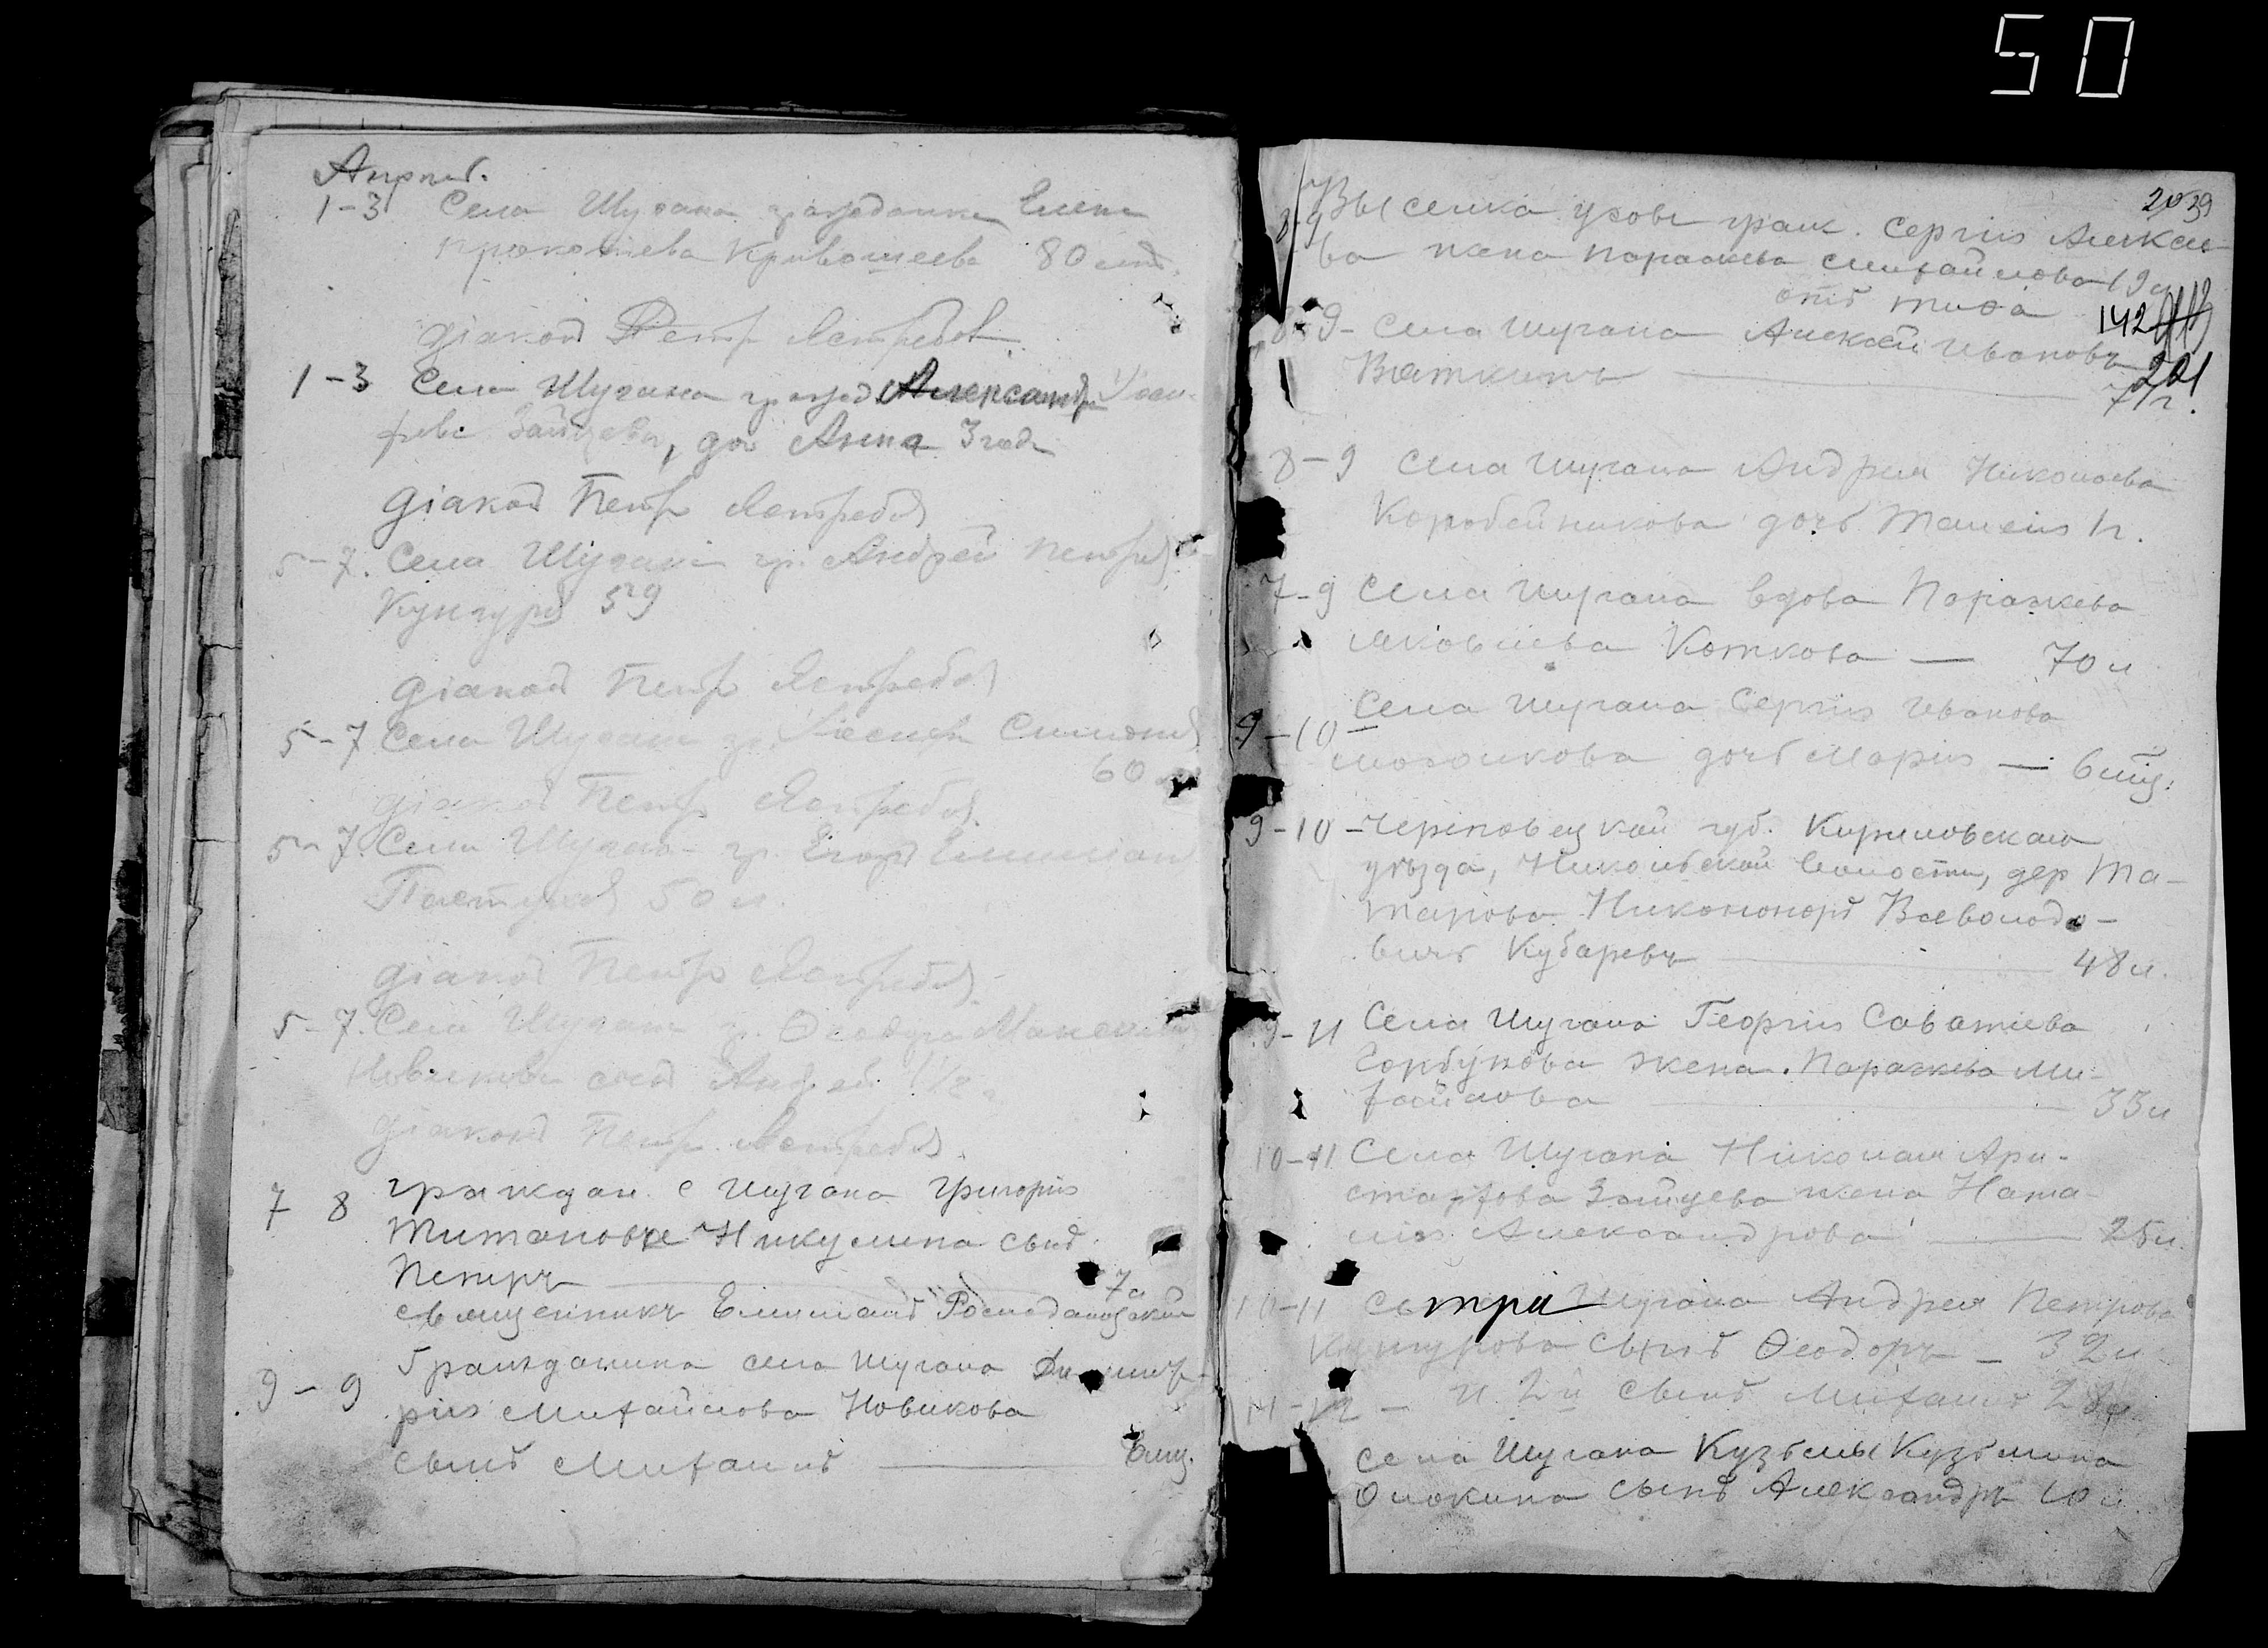 50
Апрѣль.
1-3 Села Шугана гражданка Елена
Прокопьева Кривошеева 80 лѣт.
діаконъ Петръ Ястребовъ
1-3 Села Шугана гражд. Александра
Зайцева, доч Анна 3 года
діаконъ Петръ Ястребовъ
5-7. Села Шугана гр. Андрей Петровъ
Кунгуровъ 59
діаконъ Петръ Ястребовъ
5-7 Села Шугана гр. Симоновъ
60
діаконъ Петръ Ястребовъ
5-7. Села Шугана гр. Егоръ
Пастуховъ 50 л.
діаконъ Петръ Ястребовъ
5-7. Села Шугана гр. Ѳеодора
Новикова сынъ Андрей 1½ г.
діаконъ Петръ Ястребовъ
7 8 граждан. с Шугана Григорія
Титановa Никулина сынъ
Петръ 7л
священникъ Емиліанъ
9-9 Гражданина села Шугана Димит-
рія Михайлова Новикова
сынъ Михаилъ 6 мц.
2039
8-9 Выселка Усовы граж. Сергія Алексѣе-
ва жена Параскева Михайлова 19 л
отъ тифа
142
8-9- Села Шугана Алексѣй Ивановъ
201
Вяткинъ 71г.
8-9 Села Шугана Андрея Николаева
Коробейникова дочь Таисія 1г.
7-9 Села Шугана вдова Параскева
Яковлева Коткова — 70 л
Села Шугана Сергія Иванова
9-10-
дочь Марія — 6 мц.
9-10-Череповецкой губ. Кирилловскаго
уѣзда, Никольской волости, дер Та-
тарова Никаноръ Всеволодо-
вичъ Кубаревъ 48 л.
9-11 Села Шугана Георгія Саватіева
Горбунова жена. Параскева Ми-
хайлова 33 л
10-11 Села Шугана Николая Ари-
стархова Зайцева жена Ната-
лія Александрова 25 л.
10-11 Шугана Андрея Петрова
Кунгурова сынъ Ѳеодоръ — 32 л
11-12 - и 2й сынъ Михаилъ 28 л
Села Шугана Кузьмы Кузьмина
сынъ Александръ 10 л.